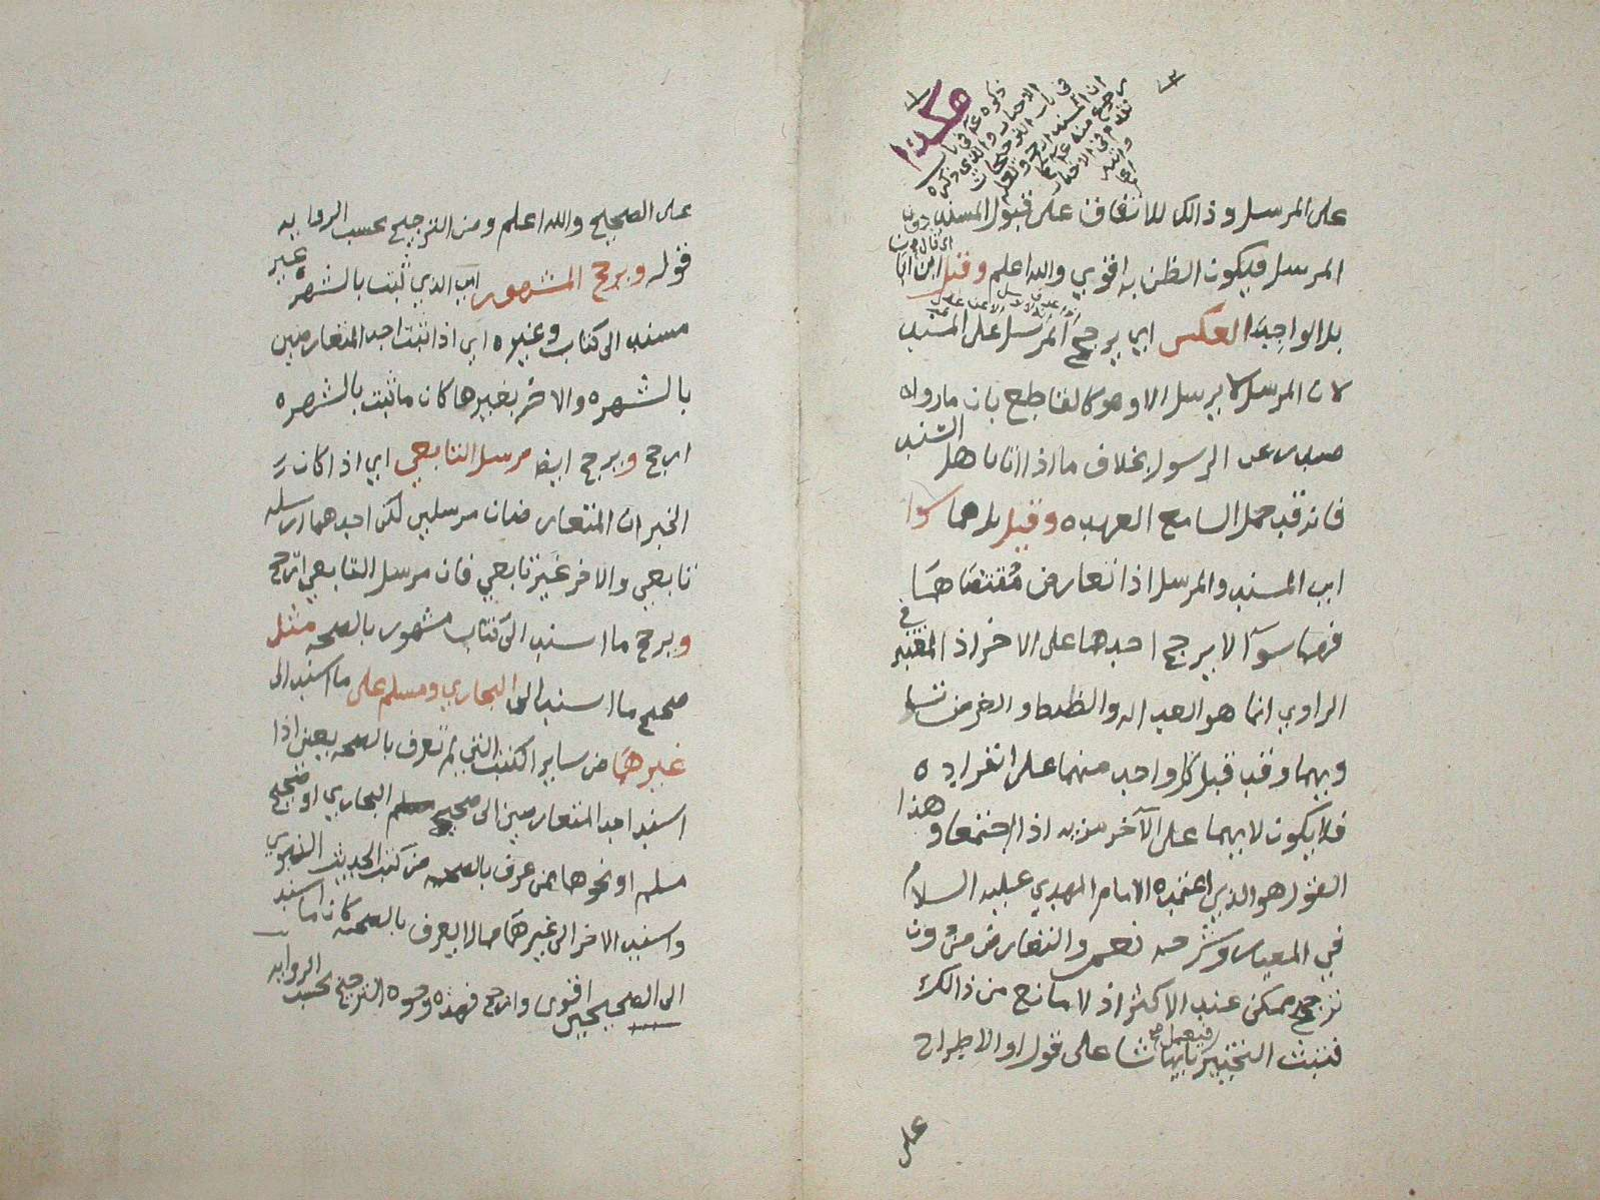 على المرسل وذالك للاتفاق على قبول المسند دون
المرسل فيكون الظن به اقوي والله اعلم وقيل
بل الواجب العكس اي يرجح المرسل على المسند
لان المرسل لا يرسل الا وهو كالقاطع بان مارواه
صدر عن الرسول بخلاف ما اذا اتا بالسند
فانه قد حمل السامع العهده وقيل بل هما سوا
اي المسند والمرسل اذا تعارض مقتضاهما
فهما سوآ لا يرجح احدهما على الاخر اذ المعتبر في
الراوي انما هو العداله والظبط والغرض
وبهما وقد قبل كل واحد منهما على انفراده
فلا يكون لا يهما على الآخر مزيه اذا اجتمعا وهذا
القول هو الذي اعتمده الامام المهدي عليه السلام
في المعيار وشرحه نعم والتعارض من دون
ترجيح ممكن عند الاكثر اذ لا مانع من ذالك
فيثبت التخيير فيعمل بايهما شا على قول او الاطراح
على
على الصحيح والله اعلم ومن الترجيح بحسب الروايه
قوله ويرجح المشهور اي الذي ثبت بالشهره غير
مسند الى كتاب وغيره اي اذا ثبت احد المتعارضين
بالشهره والاخر بغيرها كان ما ثبت بالشهره
ارجح ويرجح ايضا مرسل التابعي اي اذا كان
الخبران المتعارضان مرسلين لكن احدهما ارسله
تابعي والاخر غير تابعي فان مرسل التابعي ارجح
ويرجح ما اسند الى كتاب مشهور بالصحه مثل
صحيح ما اسند الى البخاري ومسلم على ما اسند الى
غيرهما من ساير الكتب التي لم تعرف بالصحه يعني اذا
اسند احد المتعارضين الى صحيح البخاري او صحيح
مسلم او نحوهما ممن عرف بالصحه من كتب الحديث النبوي
واسند الاخر الى غيرهما مما لا يعرف بالصحه كان ما اسند
الى الصحيحين اقوى وارجح فهذه وجوه الترجيح بحسب الروايه